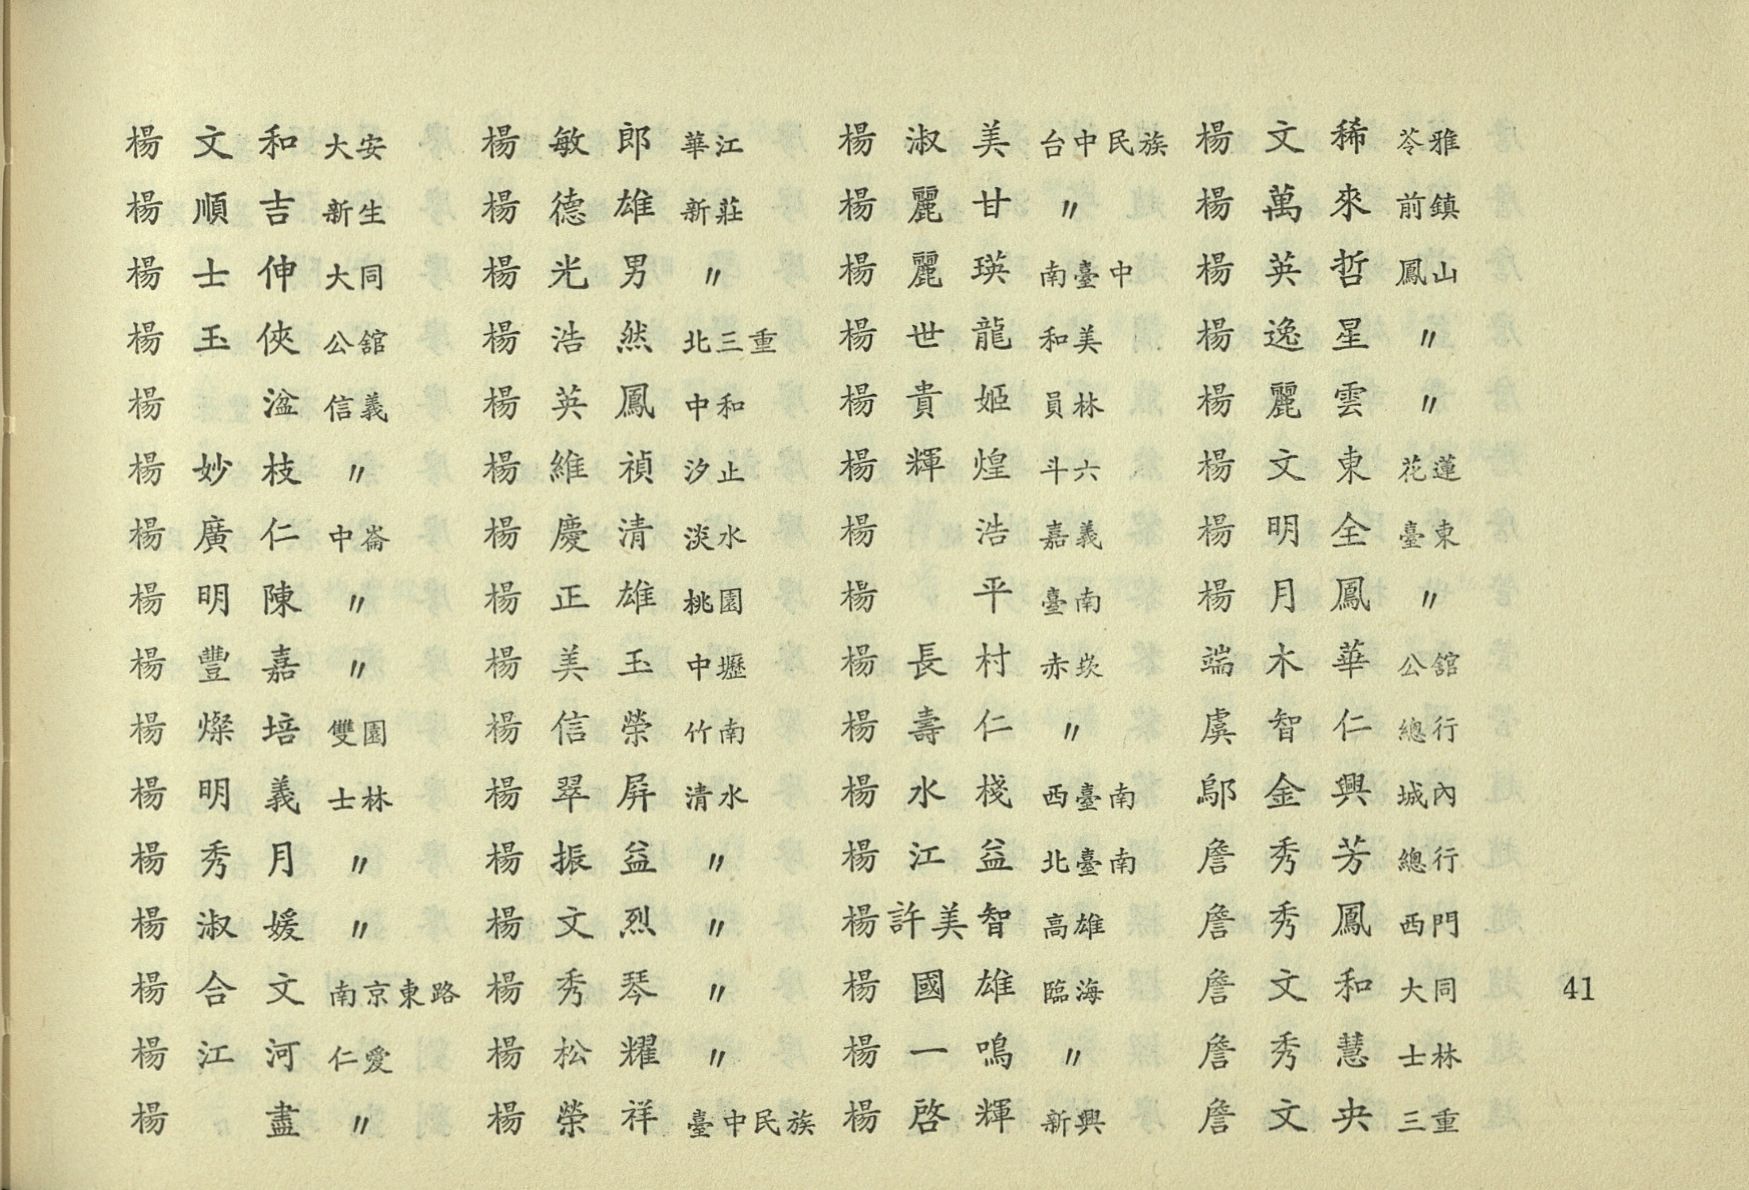 楊文和 大安
楊順吉 新生
楊士伸 大同
楊玉俠 公舘
楊 湓 信義
楊妙枝 〃
楊廣仁 中崙
楊明陳 〃
楊豐嘉 〃
楊燦培 雙園
楊明義 士林
楊秀月 〃
楊淑媛 〃
楊合文 南京東路
楊江河 仁愛
楊 盡 〃
楊敏郎 華江
楊德雄 新莊
楊光男 〃
楊浩然 北三重
楊英鳳 中和
楊維禎 汐止
楊慶清 淡水
楊正雄 桃園
楊美玉 中壢
楊信榮 竹南
楊翠屏 清水
楊振益 〃
楊文烈 〃
楊秀琴 〃
楊松耀 〃
楊榮祥 臺中民族
楊淑美 台中民族
楊麗甘 〃
楊麗瑛 南臺中
楊世龍 和美
楊貴姬 員林
楊輝煌 斗六
楊 浩 嘉義
楊 平 臺南
楊長村 赤崁
楊壽仁 〃
楊水棧 西臺南
楊江益 北臺南
楊許美智 高雄
楊國雄 臨海
楊一鳴 〃
楊啓輝 新興
楊文稀 苓雅
楊萬來 前鎮
楊英哲 鳳山
楊逸星 〃
楊麗雲 〃
楊文東 花蓮
楊明全 臺東
楊月鳳 〃
端木華 公舘
虞智仁 總行
鄔金興 城內
詹秀芳 總行
詹秀鳳 西門
詹文和 大同
詹秀慧 士林
詹文央 三重
41